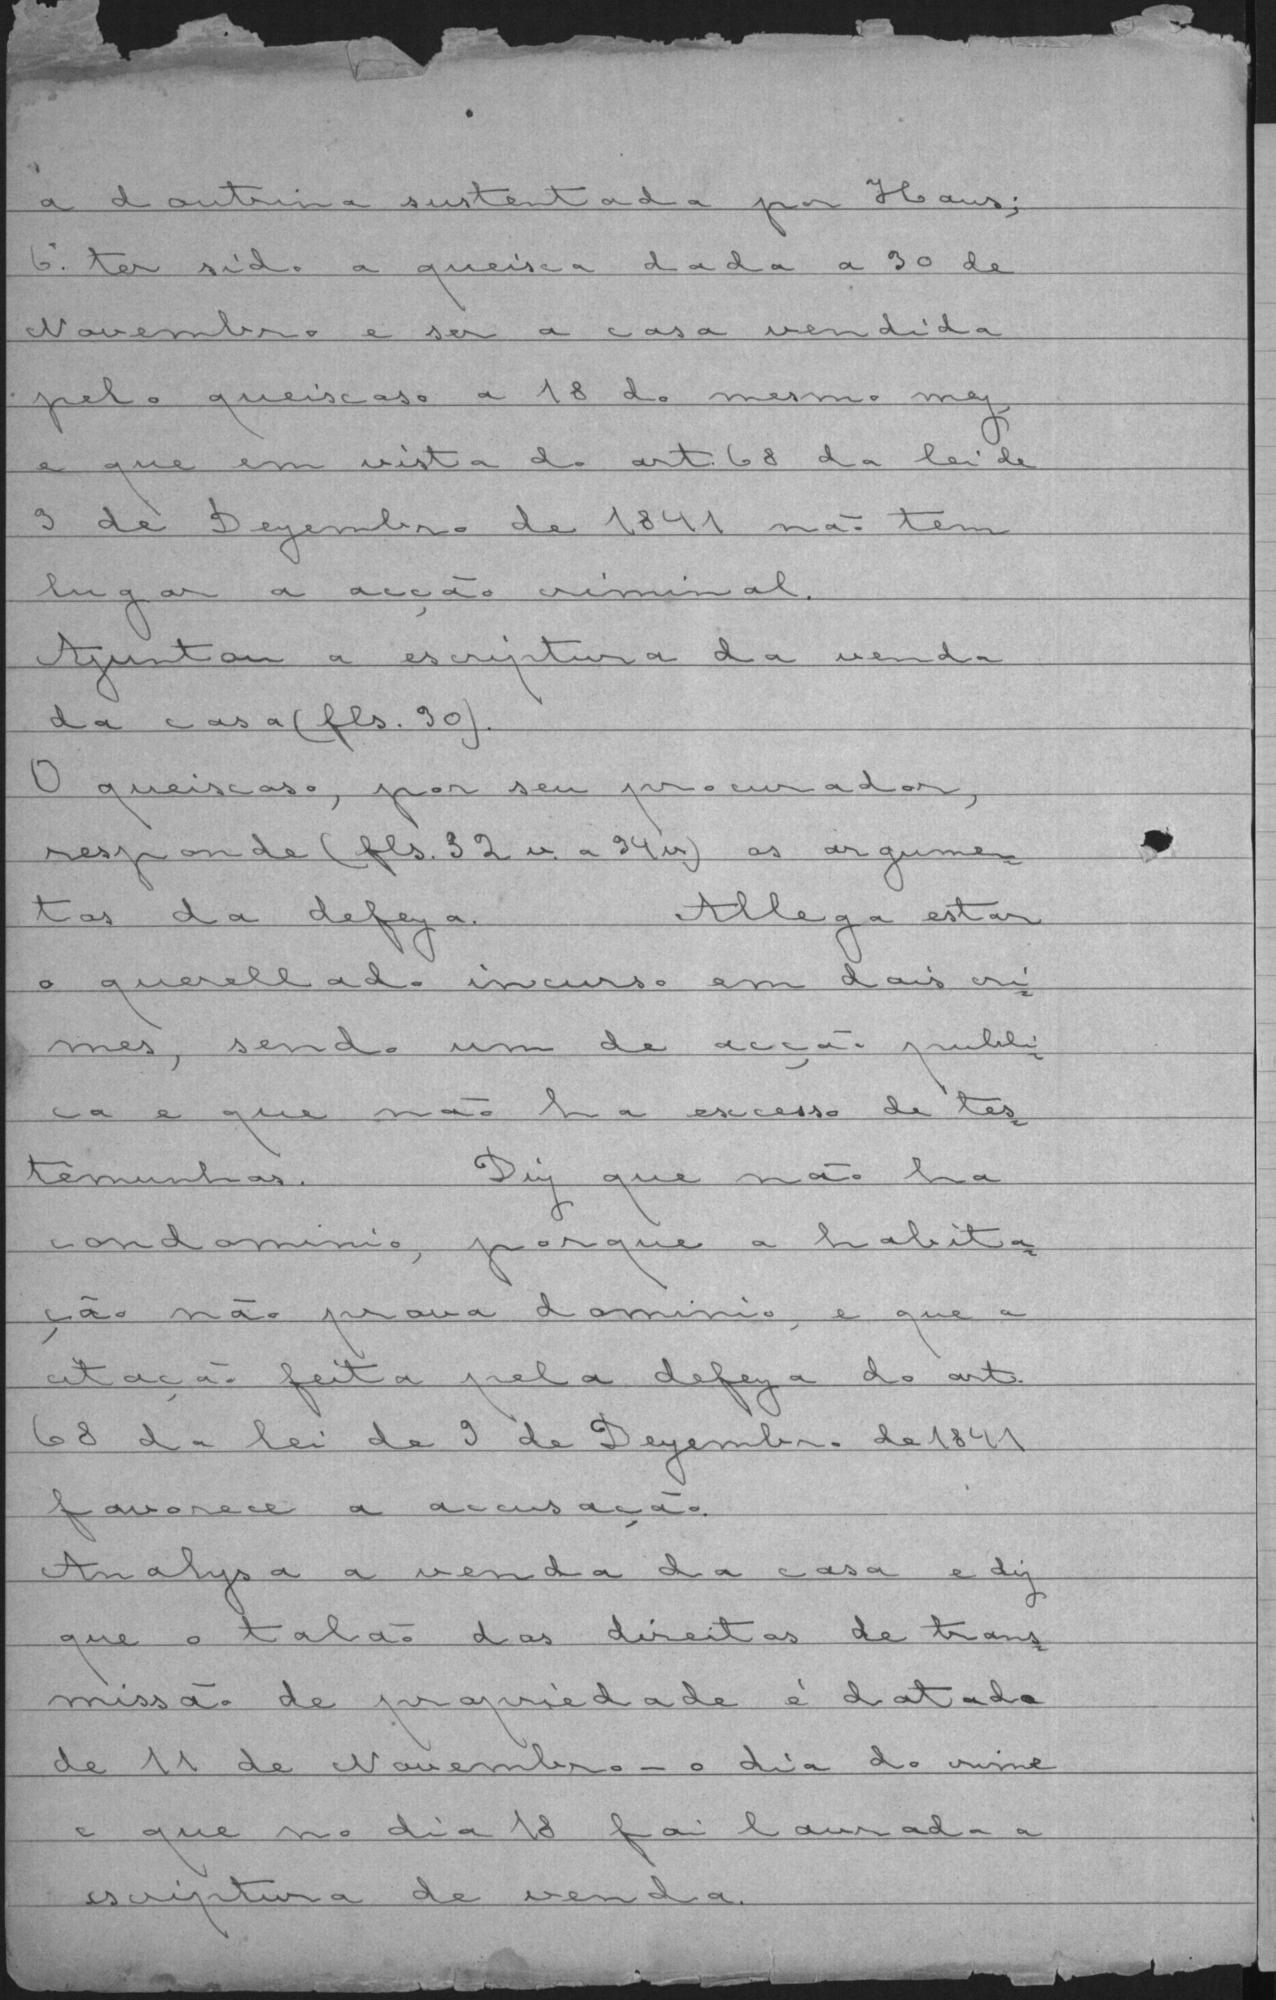 á doutrina sustentada por Haus;
6º. ter sido a queixa dada a 30 de
Novembro e ser a casa vendida
pelo queixoso a 18 do mesmo mez,
e que em vista do art. 68 da lei de
3 de Dezembro de 1841 não tem
lugar a acção criminal.
Ajuntou a escriptura da venda
da casa (fls. 30).
O queixoso, por seu procurador,
responde (fls. 32 v. a 34 v.) os argumen=
tos da defeza. Allega estar
o querellado incurso em dois cri=
mes, sendo um de acção publi=
ca e que não ha excesso de tes=
temunhas. Diz que não ha
condominio, porque a habita=
ção não prova dominio, e que a
citação feita pela defeza do art.
68 da lei de 3 de Dezembro de 1841
favorece a accusação.
Analysa a venda da casa e diz
que o talão dos direitos de trans=
missão de propriedade é datado
de 11 de Novembro - o dia do crime
e que no dia 18 foi lavrada a
escriptura de venda.